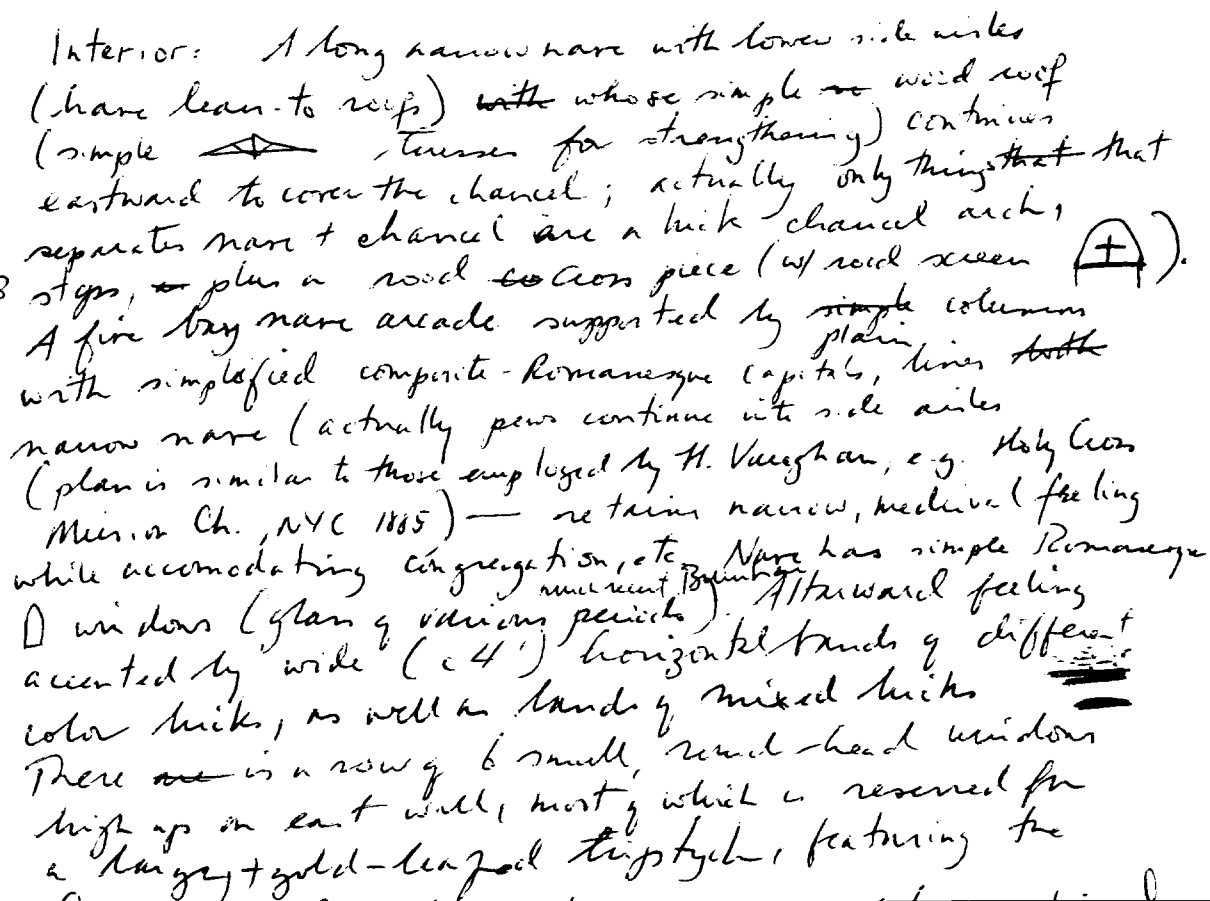 Interior: A long narrow nave with lower side aisles
(have lean-to roofs) with whose simple wood roof
(simple trusses for strengthening) continues
eastward to cover the chancel; actually only things that that
separates nave + chancel are a brick chancel arch,
3 steps, plus a rood cross piece (w/ rood screen ).
A five bay nave arcade supported by simple columns
plain
with simplified composite-Romanesque capitals, lines both
narrow nave (actually pews continue into side aisles
(plan is similar to those employed by H. Vaughan, e.g. Holy Cross
Mission Ch., NYC 1885) — retains narrow, medieval feeling
while accomodating congregation, etc. Nave has simple Romanesque
windows (glass of various periods). Altarward feeling
accented by wide (c 4') horizontal bands of different
color bricks, as well as bands of mixed bricks
There are is a row of 6 small, round-head windows
high up on east wall, most of which is reserved for
a large, + gold-leafed triptych, featuring the